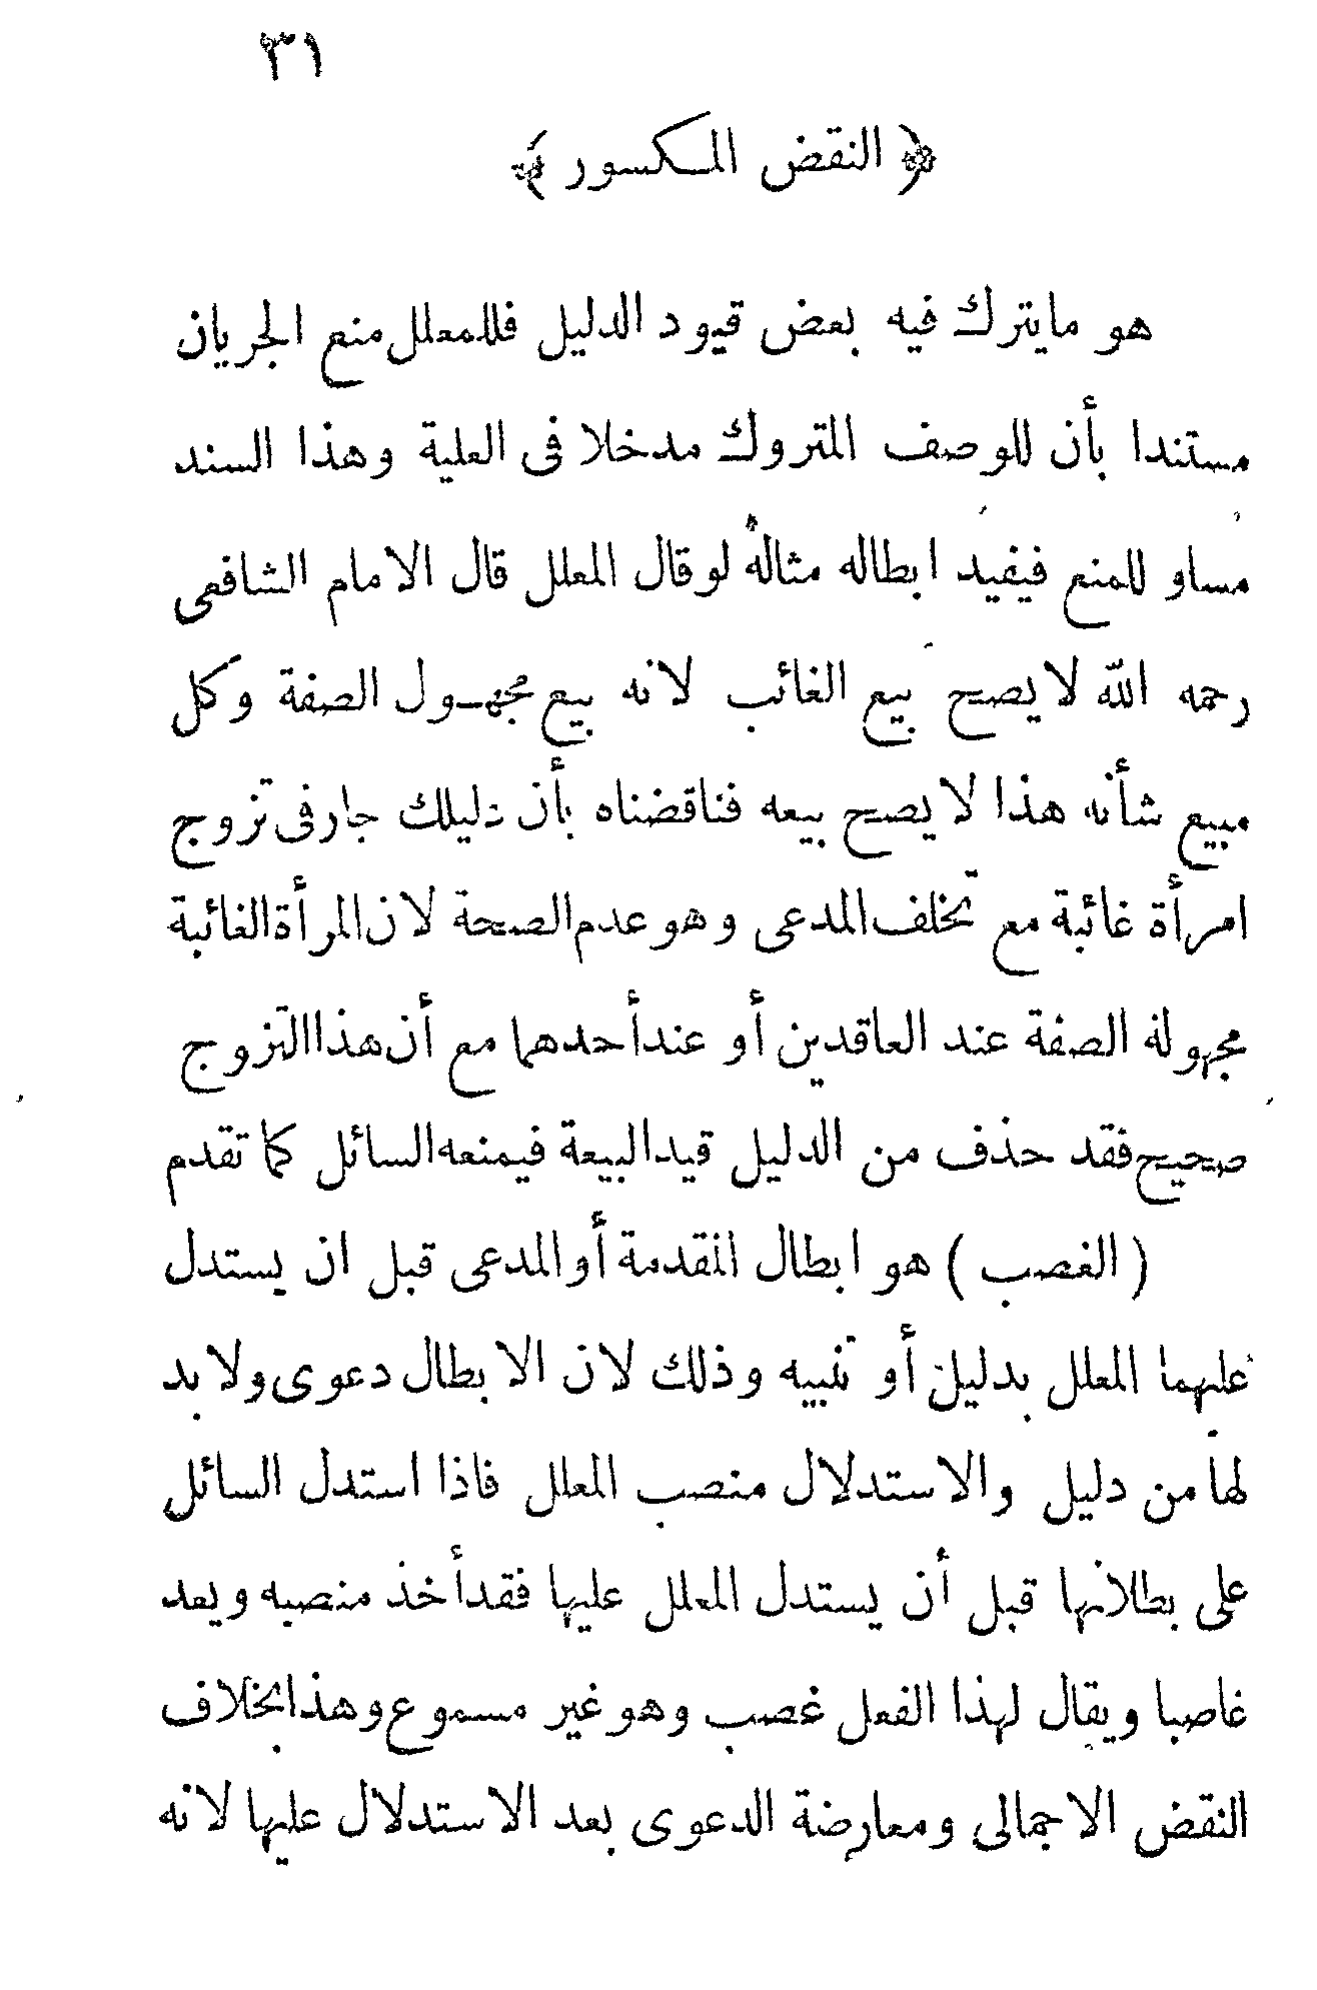 ٣١
﴿ النقض المكسور ﴾
هو مايترك فيه بعض قيود الدليل فللمعلل منع الجريان
مستندا بأن للوصف المتروك مدخلا فى العلية وهذا السند
مساو للمنع فيفيد ابطاله مثاله لوقال المعلل قال الامام الشافعى
رحمه الله لايصح بيع الغائب لانه بيع مجهول الصفة وكل
مبيع شأنه هذا لايصح بيعه فناقضناه بأن دليلك جار فى تزوج
امرأة غائبة مع تخلف المدعى وهو عدم الصحة لان المرأة الغائبة
مجهولة الصفة عند العاقدين أو عند أحدهما مع أن هذا التزوج
صحيح فقد حذف من الدليل قيد البيعة فيمنعه السائل كما تقدم
( الغصب ) هو ابطال المقدمة أو المدعى قبل ان يستدل
عليهما المعلل بدليل أو تنبيه وذلك لان الابطال دعوى ولا بد
لها من دليل والاستدلال منصب المعلل فاذا استدل السائل
على بطلانها قبل أن يستدل المعلل عليها فقد أخذ منصبه ويعد
غاصبا ويقال لهذا الفعل غصب وهو غير مسموع وهذا بخلاف
النقض الاجمالى ومعارضة الدعوى بعد الاستدلال عليها لانه